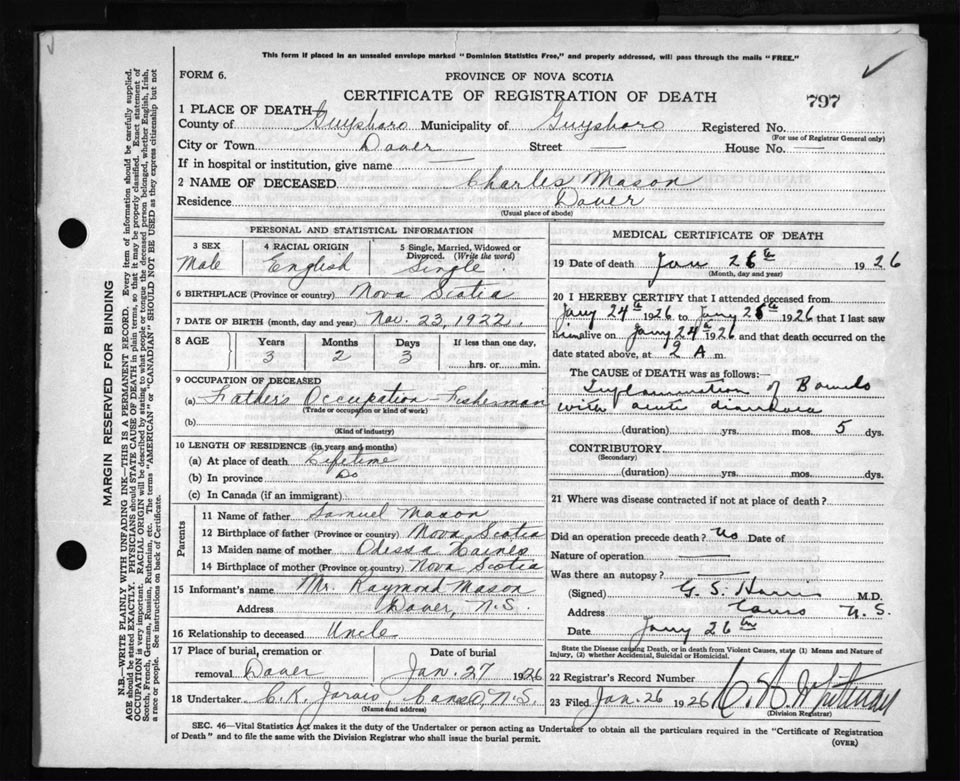 This form if placed in an unsealed envelope marked "Dominion Statistics Free," and properly addressed, will pass through the mails "FREE."
FORM 6.
PROVINCE OF NOVA SCOTIA
CERTIFICATE OF REGISTRATION OF DEATH
797
1 PLACE OF DEATH
County of Guysboro Municipality of Guysboro Registered No.
(For use of Registrar General only)
City or Town Dover Street — House No. —
If in hospital or institution, give name —
2 NAME OF DECEASED Charles Mason
Residence Dover
(Usual place of abode)
PERSONAL AND STATISTICAL INFORMATION
3 SEX 4 RACIAL ORIGIN 5 Single, Married, Widowed or Divorced. (Write the word)
Male English Single.
6 BIRTHPLACE (Province or country) Nova Scotia
7 DATE OF BIRTH (month, day and year) Nov. 23, 1922.
8 AGE Years Months Days If less than one day,
3 2 3 hrs. or min.
9 OCCUPATION OF DECEASED
(a) Father's Occupation - Fisherman
(Trade or occupation or kind of work)
(b)
(Kind of industry)
10 LENGTH OF RESIDENCE (in years and months)
(a) At place of death Lifetime
(b) In province Do
(c) In Canada (if an immigrant)
Parents
11 Name of father Samuel Mason
12 Birthplace of father (Province or country) Nova Scotia
13 Maiden name of mother Odessa Haines
14 Birthplace of mother (Province or country) Nova Scotia
15 Informant's name Mr. Raymond Mason
Address Dover, N.S.
16 Relationship to deceased Uncle
17 Place of burial, cremation or Date of burial
removal Dover Jan. 27 1926
18 Undertaker C. K. Jarvis, Canso, N.S.
(Name and address)
MEDICAL CERTIFICATE OF DEATH
19 Date of death Jan 26th 1926
(Month, day and year)
20 I HEREBY CERTIFY that I attended deceased from
Jany 24th 1926 to Jany 26th 1926 that I last saw
him alive on Jany 24th 1926 and that death occurred on the
date stated above, at 2 A m.
The CAUSE OF DEATH was as follows:
Inflammation of Bowels
with acute diarrhoea
(duration) yrs. mos. 5 dys.
CONTRIBUTORY
(Secondary)
(duration) yrs. mos. dys.
21 Where was disease contracted if not at place of death?
Did an operation precede death? No Date of
Nature of operation —
Was there an autopsy? —
(Signed) G. S. Harris M.D.
Address Canso N.S.
Date Jany 26th
State the Disease causing Death, or in death from Violent Causes, state (1) Means and Nature of
Injury, (2) whether Accidental, Suicidal or Homicidal.
22 Registrar's Record Number
23 Filed Jan. 26 1926
(Division Registrar)
SEC. 46—Vital Statistics Act makes it the duty of the Undertaker or person acting as Undertaker to obtain all the particulars required in the "Certificate of Registration
of Death" and to file the same with the Division Registrar who shall issue the burial permit.
(OVER)
MARGIN RESERVED FOR BINDING
N.B.—WRITE PLAINLY WITH UNFADING INK—THIS IS A PERMANENT RECORD. Every item of information should be carefully supplied.
AGE should be stated EXACTLY. PHYSICIANS should STATE CAUSE OF DEATH in plain terms, so that it may be properly classified. Exact statement of
OCCUPATION is very important. RACIAL ORIGIN will be described by stating to what people or tongue the deceased person belonged, whether English, Irish,
Scotch, French, German, Russian, Ruthenian, etc. The terms "AMERICAN" or "CANADIAN" SHOULD NOT BE USED as they express citizenship but not
a race or people. See instructions on back of Certificate.